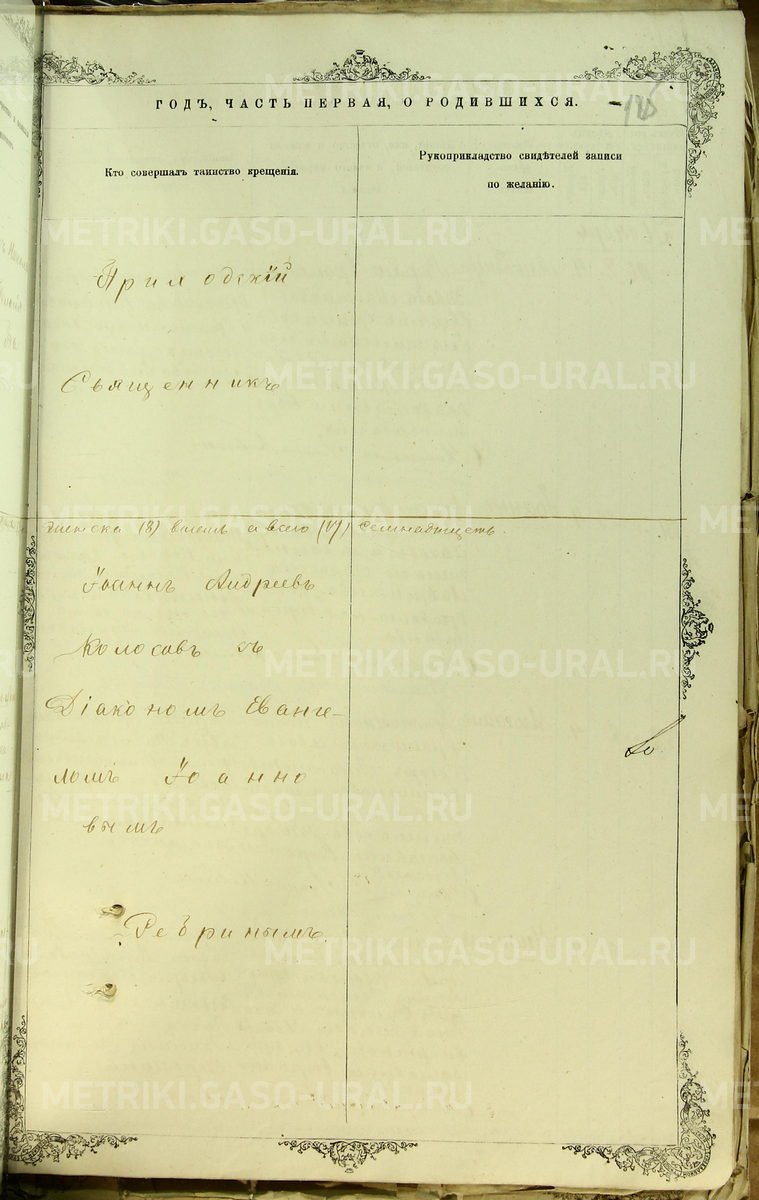 ГОДЪ, ЧАСТЬ ПЕРВАЯ, О РОДИВШИХСЯ.
Кто совершалъ таинство крещенія.
Рукоприкладство свидѣтелей записи
по желанію.
Приходскій
Священникъ
(8) восемь а всего (17) семнадцать.
Іоаннъ Андреевъ
Колосовъ съ
Діакономъ Еванге-
ломъ Іоанно
вымъ
METRIKI.GASO-URAL.RU